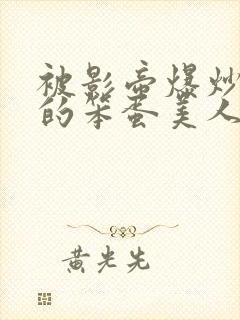 被影帝爆炒
的笨蛋美人
黄光先